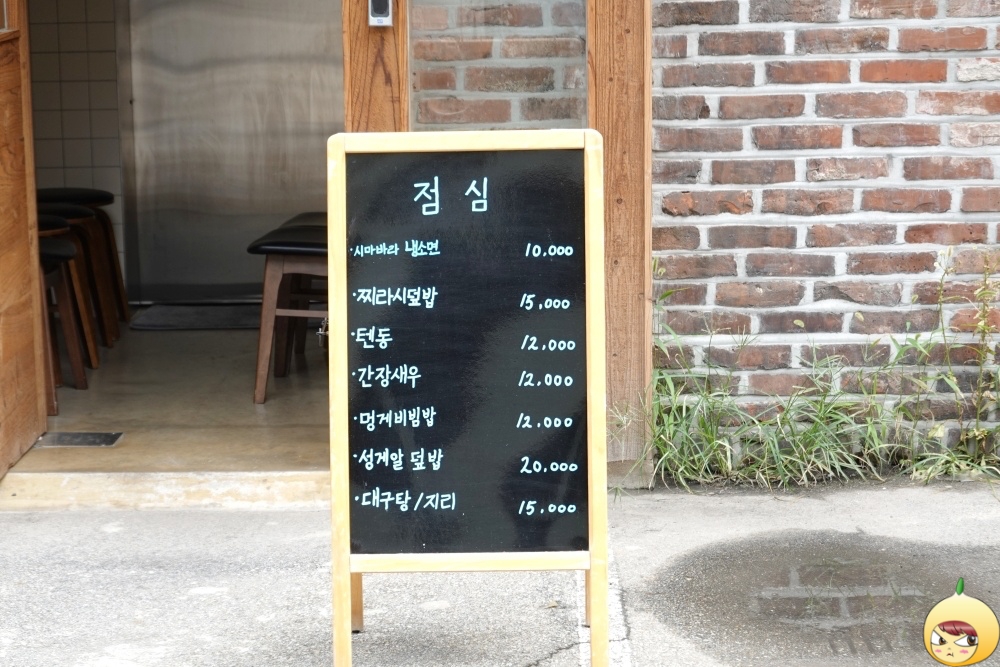 점심
·시마바라 냉소면 10,000
·찌라시덮밥 15,000
·텐동 12,000
·간장새우 12,000
·멍게비빔밥 12,000
·성게알 덮밥 20,000
·대구탕/지리 15,000